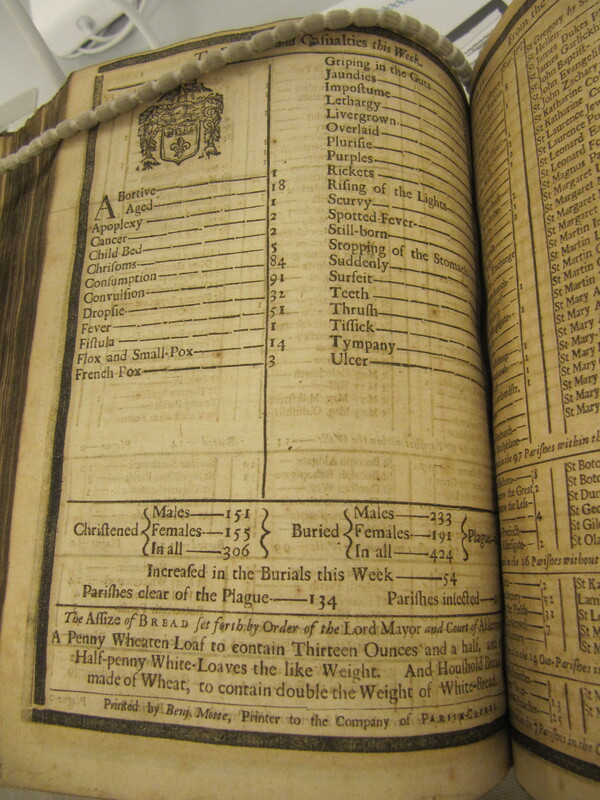 and Caſualties this Week.
ABortive 1
Aged 18
Apoplexy 1
Cancer 2
Child-Bed 2
Chriſoms 5
Conſumption 84
Convulſion 91
Dropſie 32
Fever 51
Fiſtula 1
Flox and Small-Pox 14
French Pox 3
Griping in the Guts
Jaundies
Impoſtume
Lethargy
Livergrown
Overlaid
Pluriſie
Purples
Rickets
Riſing of the Lights
Scurvy
Spotted-Fever
Still-born
Stopping of the Stomach
Suddenly
Surfeit
Teeth
Thruſh
Tiſſick
Tympany
Ulcer
Chriſtened { Males 151 Females 155 In all 306 } Buried { Males 233 Females 191 In all 424 } Plague
Increaſed in the Burials this Week 54
Pariſhes clear of the Plague 134 Pariſhes infected
The Aſſize of BREAD ſet forth by Order of the Lord Mayor and Court of
A Penny Wheaten Loaf to contain Thirteen Ounces and a half, and
Half-penny White-Loaves the like Weight. And Houſhold
made of Wheat, to contain double the Weight of White-Bread.
Printed by Benj. Motte, Printer to the Company of PARISH-CLERKS.
From the
St Gregory by St
St Helen
St James Dukes
St James Garlickh
St John Baptiſt
St John Evangeliſ
St John Zachar
St Katharine Co
St Katharine
St Laurence Jew
St Laurence Po
St Leonard Ea
St Leonard Fo
St Magnus Pa
St Margaret L
St Margaret
St Margaret
St Margaret
St Martin
St Martin
St Martin
St Martin
St Martin
St Mary A
St Mary
St Mary
St Mary
St Mary
St Mary
St Mary
St Mary
the 97 Pariſhes within th
St Boto
St Boto
St Dun
St Geo
St Gile
St Ola
the 16 Pariſhes without
St Ka
Lam
St Le
St M
St M